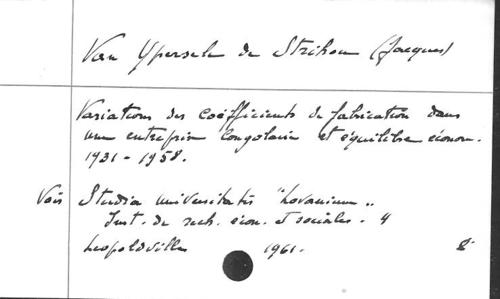 Van Ypersele de Strihou (Jacques)
Variations des coefficients de fabrication dans
une entreprise Congolaise et équilibre économ.
1931 - 1958.
Voir Studia universitatis "Lovanium"
Inst. de rech. écon. et sociales - 4
Leopoldville 1961. 8°